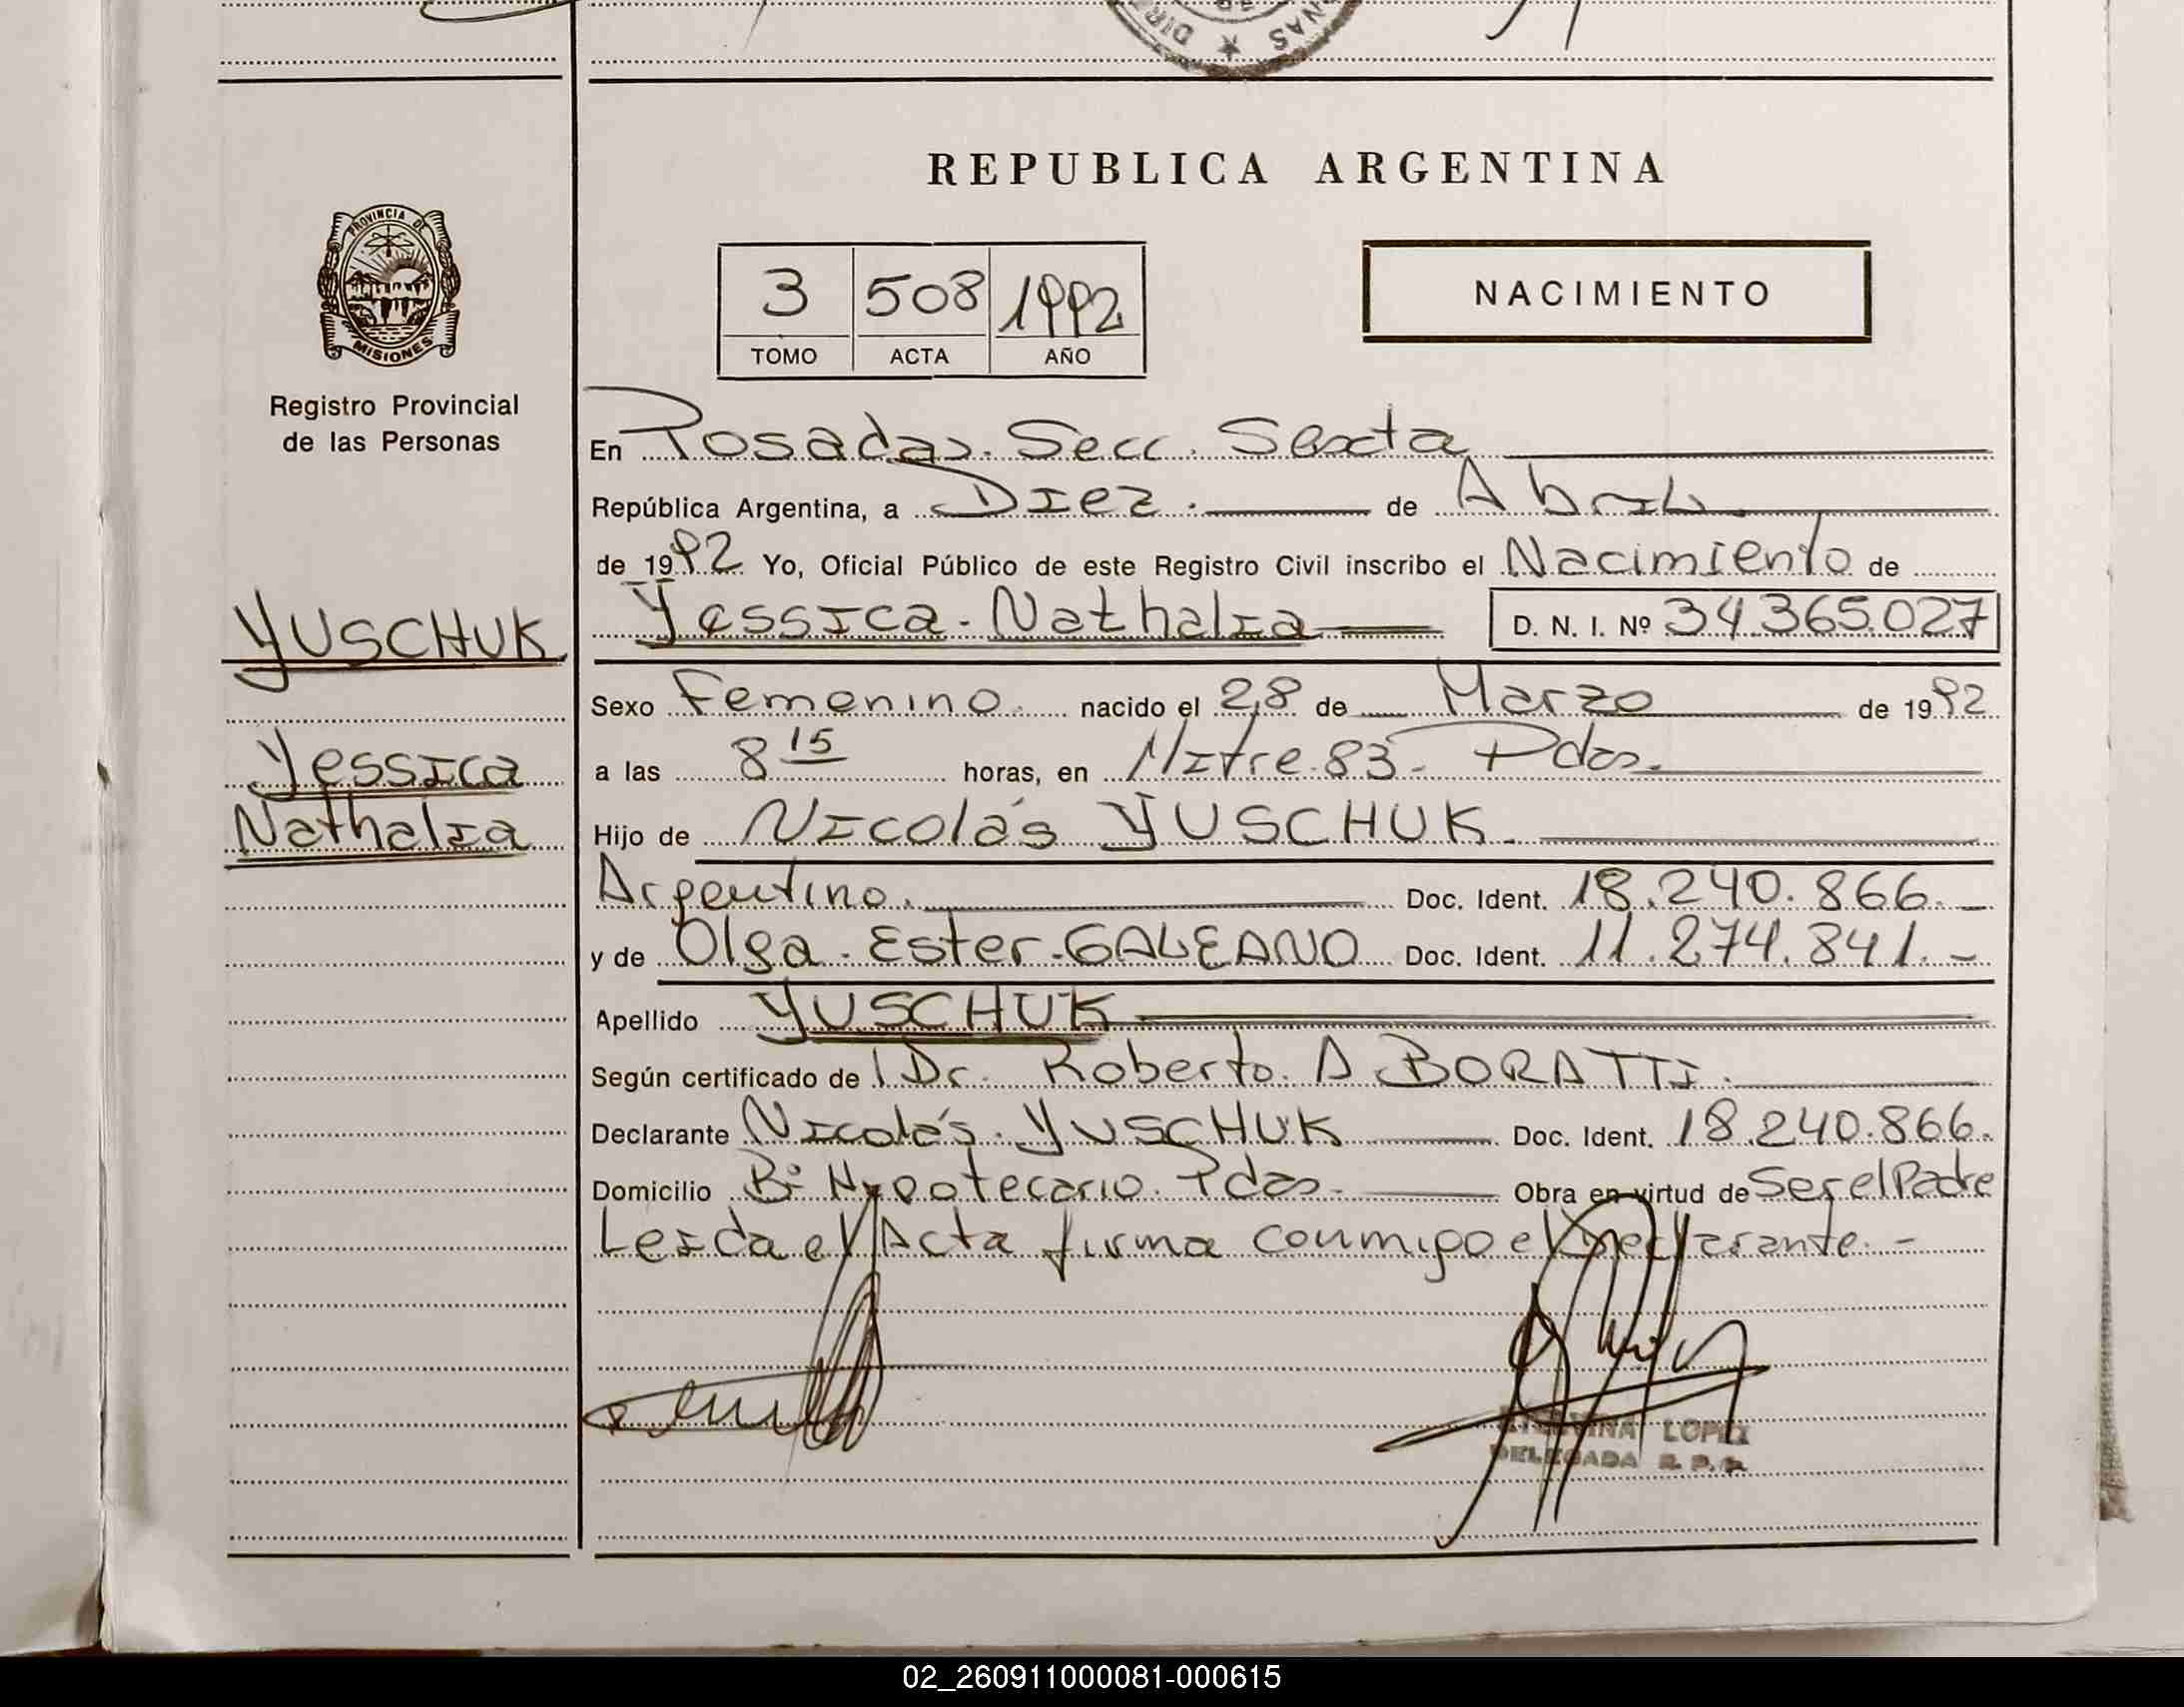 DIRE ★ NAS
REPUBLICA ARGENTINA
PROVINCIA DE
MISIONES
3 508 1992
TOMO ACTA AÑO
NACIMIENTO
Registro Provincial
de las Personas
En Posadas. Secc. Sexta
República Argentina, a Diez. de Abril.
de 1992 Yo, Oficial Público de este Registro Civil inscribo el Nacimiento de
Yessica. Nathalia D. N. I. Nº 34.365.027
YUSCHUK
Sexo Femenino. nacido el 28 de Marzo de 1992
Yessica
a las 8 15 horas, en Mitre 83. Pdas.
Nathalia
Hijo de Nicolás YUSCHUK.
Argentino. Doc. Ident. 18.240.866.-
y de Olga. Ester. GALEANO Doc. Ident. 11.274.841.-
Apellido YUSCHUK
Según certificado de l Dr. Roberto. A. BORATTI.
Declarante Nicolás. YUSCHUK Doc. Ident. 18.240.866.
Domicilio Bº Hypotecario. Pdas. Obra en virtud de Ser el Padre
Leida el Acta firma conmigo el Declarante.-
LOPEZ
DELEGADA R. P. P.
02_260911000081-000615